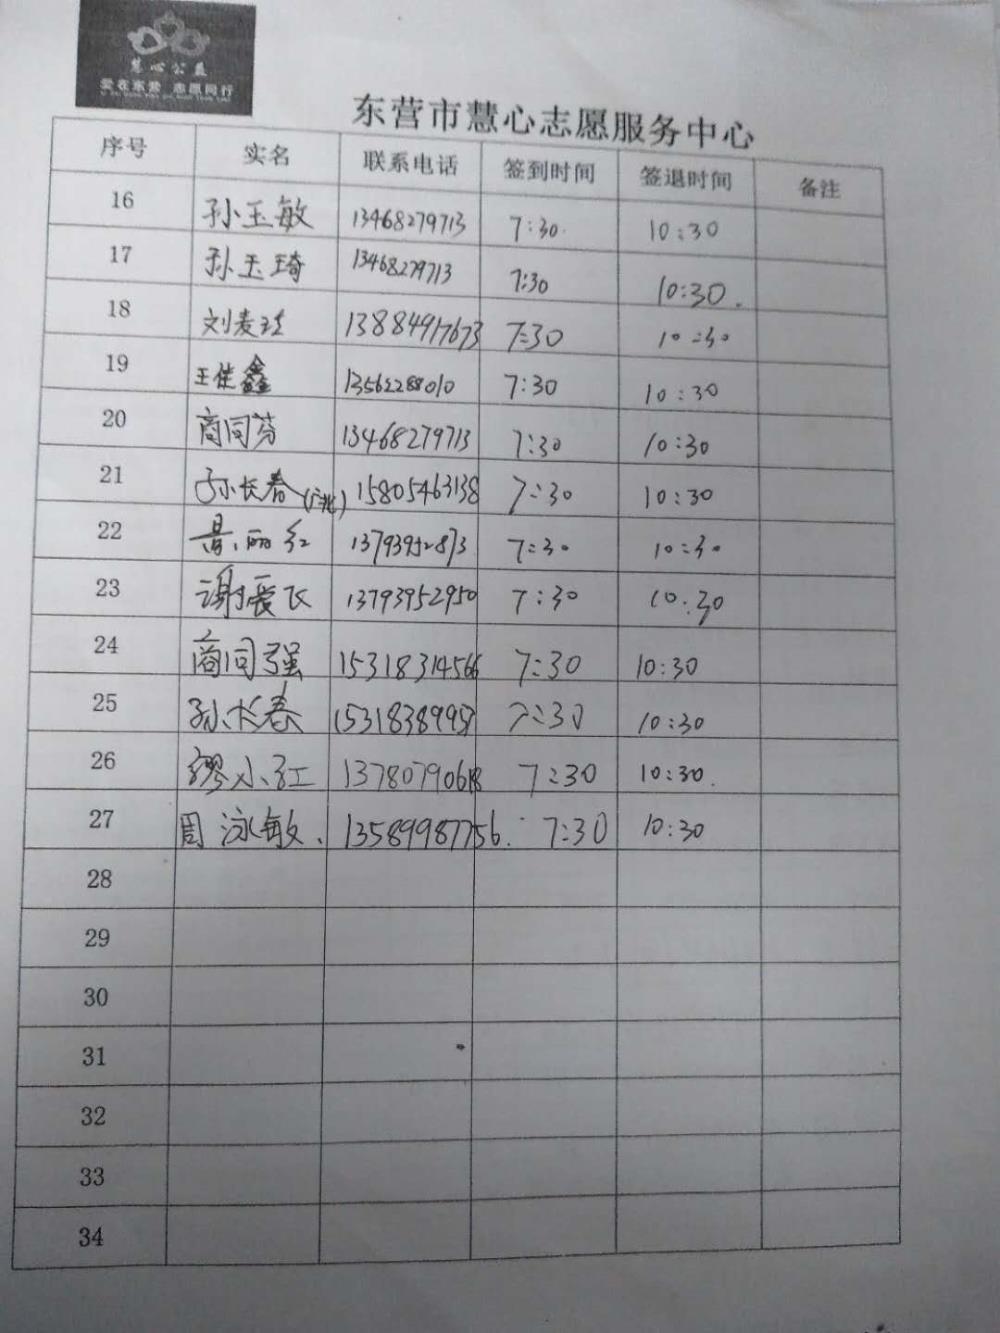 慧心公益
爱在东营 志愿同行
东营市慧心志愿服务中心
序号 实名 联系电话 签到时间 签退时间 备注
16 孙玉敏 13468279713 7:30 10:30
17 孙玉琦 13468279713 7:30 10:30
18 刘麦 13884917673 7:30 10:30
19 王佳鑫 13562288010 7:30 10:30
20 商同芬 13468279713 7:30 10:30
21 孙长春 15805463138 7:30 10:30
22 丽红 13793952873 7:30 10:30
23 谢震飞 13793952950 7:30 10:30
24 商同强 15318314566 7:30 10:30
25 孙长春 7:30 10:30
26 缪小红 7:30 10:30
27 周泳敏 13589987756 7:30 10:30
28
29
30
31
32
33
34